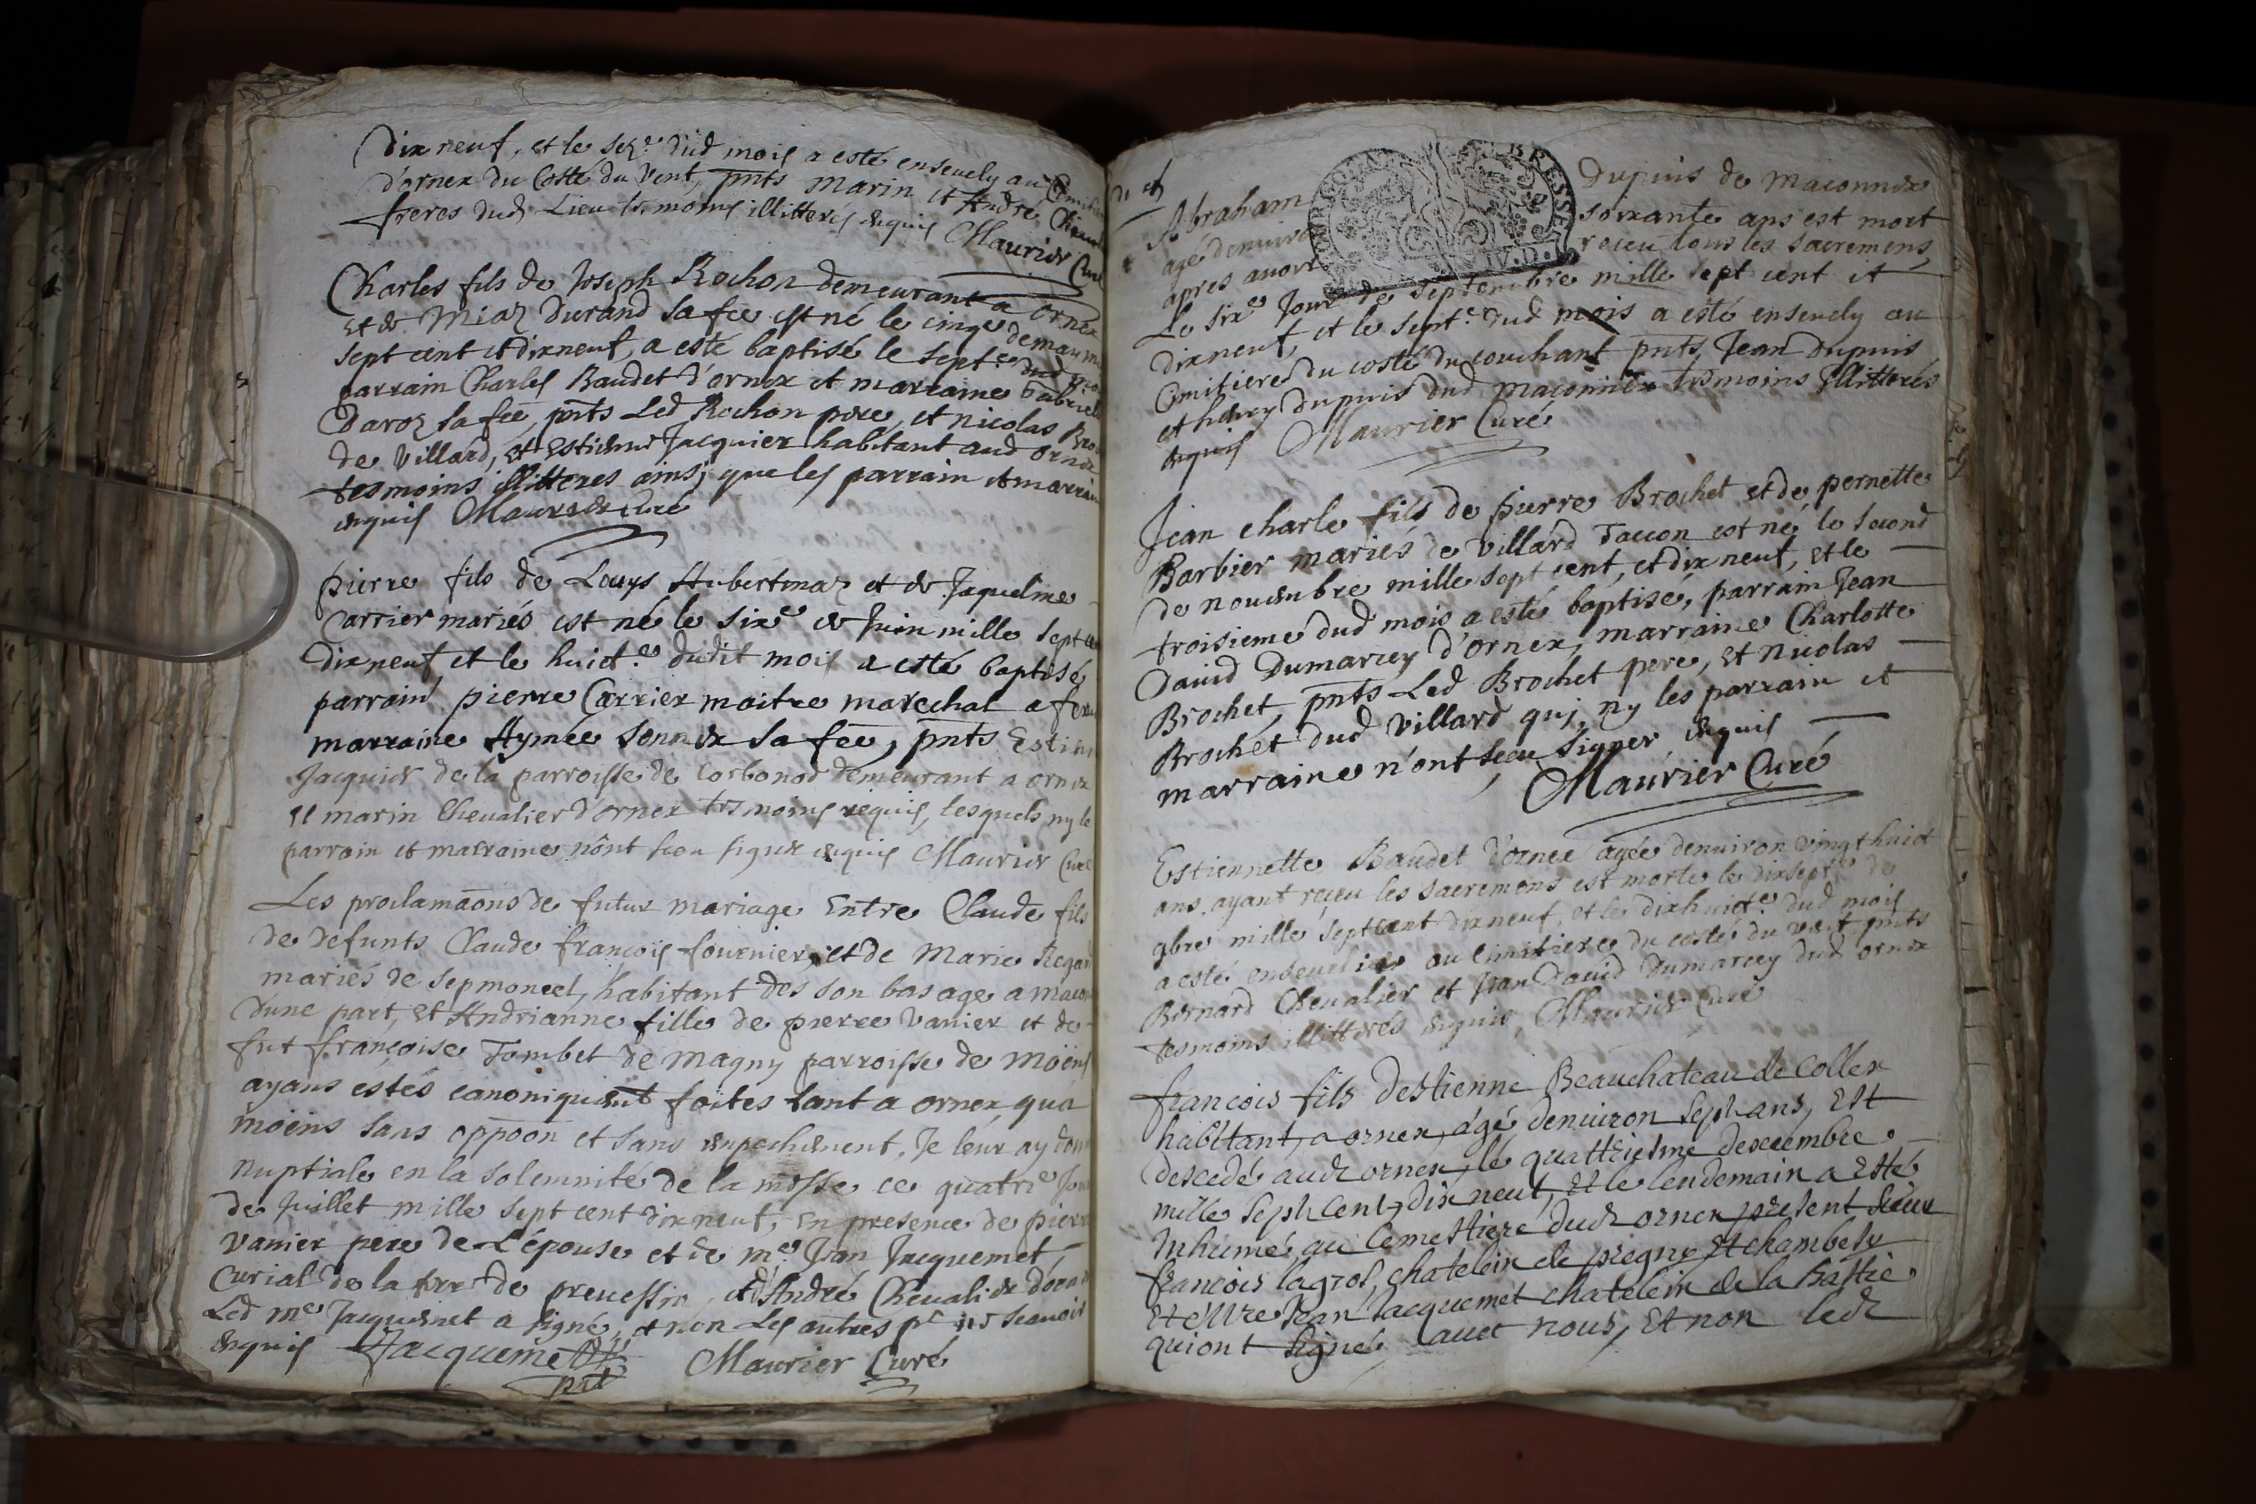 dixneuf, et le sez.e dud mois a esté enseuely au
d'ornex du Costé du Vent, pnts Marin et André
freres dud Lieu tesmoins illitterés enquis Maurier Curé
Charles fils de Joseph Rochon demeurant a ornex
et de Mia Durand sa fee est né le cinqe de may
sept cent et dixneuf, a esté baptisé le septe dud
parrain Charles Baudet d'ornex et marraine Gabriele
Daroz sa fee, pnts Led Rochon pere, et nicolas
de Villard, et Estienne Jacquier habitant aud ornex
tesmoins illitteres ainsj que les parrain et marraine
enquis Maurier Curé
pierre fils de Louys Hubertmaz et de Jaqueline
Carrier mariés est né le sixe de Juin mille sept
dixneuf, et le huict.e dudit mois a esté baptisé
parrain pierre Carrier maitre marechal a
marraine Aymée Sonnex sa fee, pnts
Jacquier de la parroisse de Corbonod demeurant a ornex
et marin Chevalier d'ornex tesmoins requis, lesquels ny le
parrain et marraine n'ont sceu signer enquis Maurier Curé
Les proclamaõns de futur mariage Entre Claude fils
de defunts Claude françois fournier, et de Marie
mariés de Sepmoncel, habitant des son bas age a
d'une part, et Andrianne fille de pierre Vanier et de
françoise Tombet de Magny parroisse de Moëns
ayans éstés canoniquemt faites tant a ornex qua
moëns sans oppoon et sans empechement, Je leur ay
Nuptiale en la solemnité de la messe ce quatrie
de Juillet mille sept cent dixneuf, en presence de pierre
Vanier pere de L'épouse et de me Jean Jacquemet
Curial de la de preuessin, et d'André Chevalier
Led me Jacquemet a signé, et non Les autres pr ne Scauoir
enquis Jacquemet Maurier Curé
pnt
Abraham Dupuis de Maconnex
agé denuiron soixante ans est mort
apres auoir receu tous les sacremens
Le sixe Jour de Septembre mille sept cent et
dixneuf, et le septe dud mois a esté enseuely au
Cimitiere du costé du couchant pnts, Jean Dupuis
et henry Dupuis dud maconnex tesmoins Illitterés
enquis Maurier Curé
Jean charle fils de pierre Brochet et de pernette
Barbier mariés de Villard Taccon est né le second
de nouembre mille sept cent, et dixneuf, et le
troisieme dud mois a esté baptisé, parrain Jean
Dauid Dumarcey d'ornex, marraine Charlotte
Brochet, pnts Led Brochet pere, et Nicolas
Brochet dud Villard quj, ny les parrain et
marraine n'ont sceu signer, enquis
Maurier Curé
Estiennette Baudet d'ornex agée denuiron vingt huict
ans, ayant reçeu les sacremens est morte le dixsepte de
9bre mille sept cent dixneuf, et le dixhuicte dud mois
a esté enseuelie au Cimitiere du costé du Vent pnts
Bernard Chevalier et Jean Dauid Dumarcey dud ornex
tesmoins illitterés enquis, Maurier Curé
françois fils destienne Beauchateau de Collex
habitant, a ornex, agé denuiron sept ans, Est
descedé audt ornex, lé quattriesme descembre
mille sept Cent, dix neuf, Et le lendemain a Esté
Inhumé, au Cemettiere dudt ornex, present sieur
françois lagrol, chatelein de pregny et chambesy
et Jean Jacquemet chatelein de la Bastie
qui ont signé, auec nous, Et non ledt